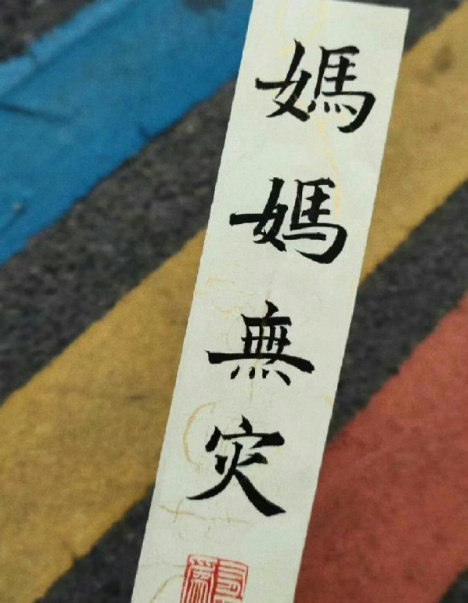 媽媽無灾